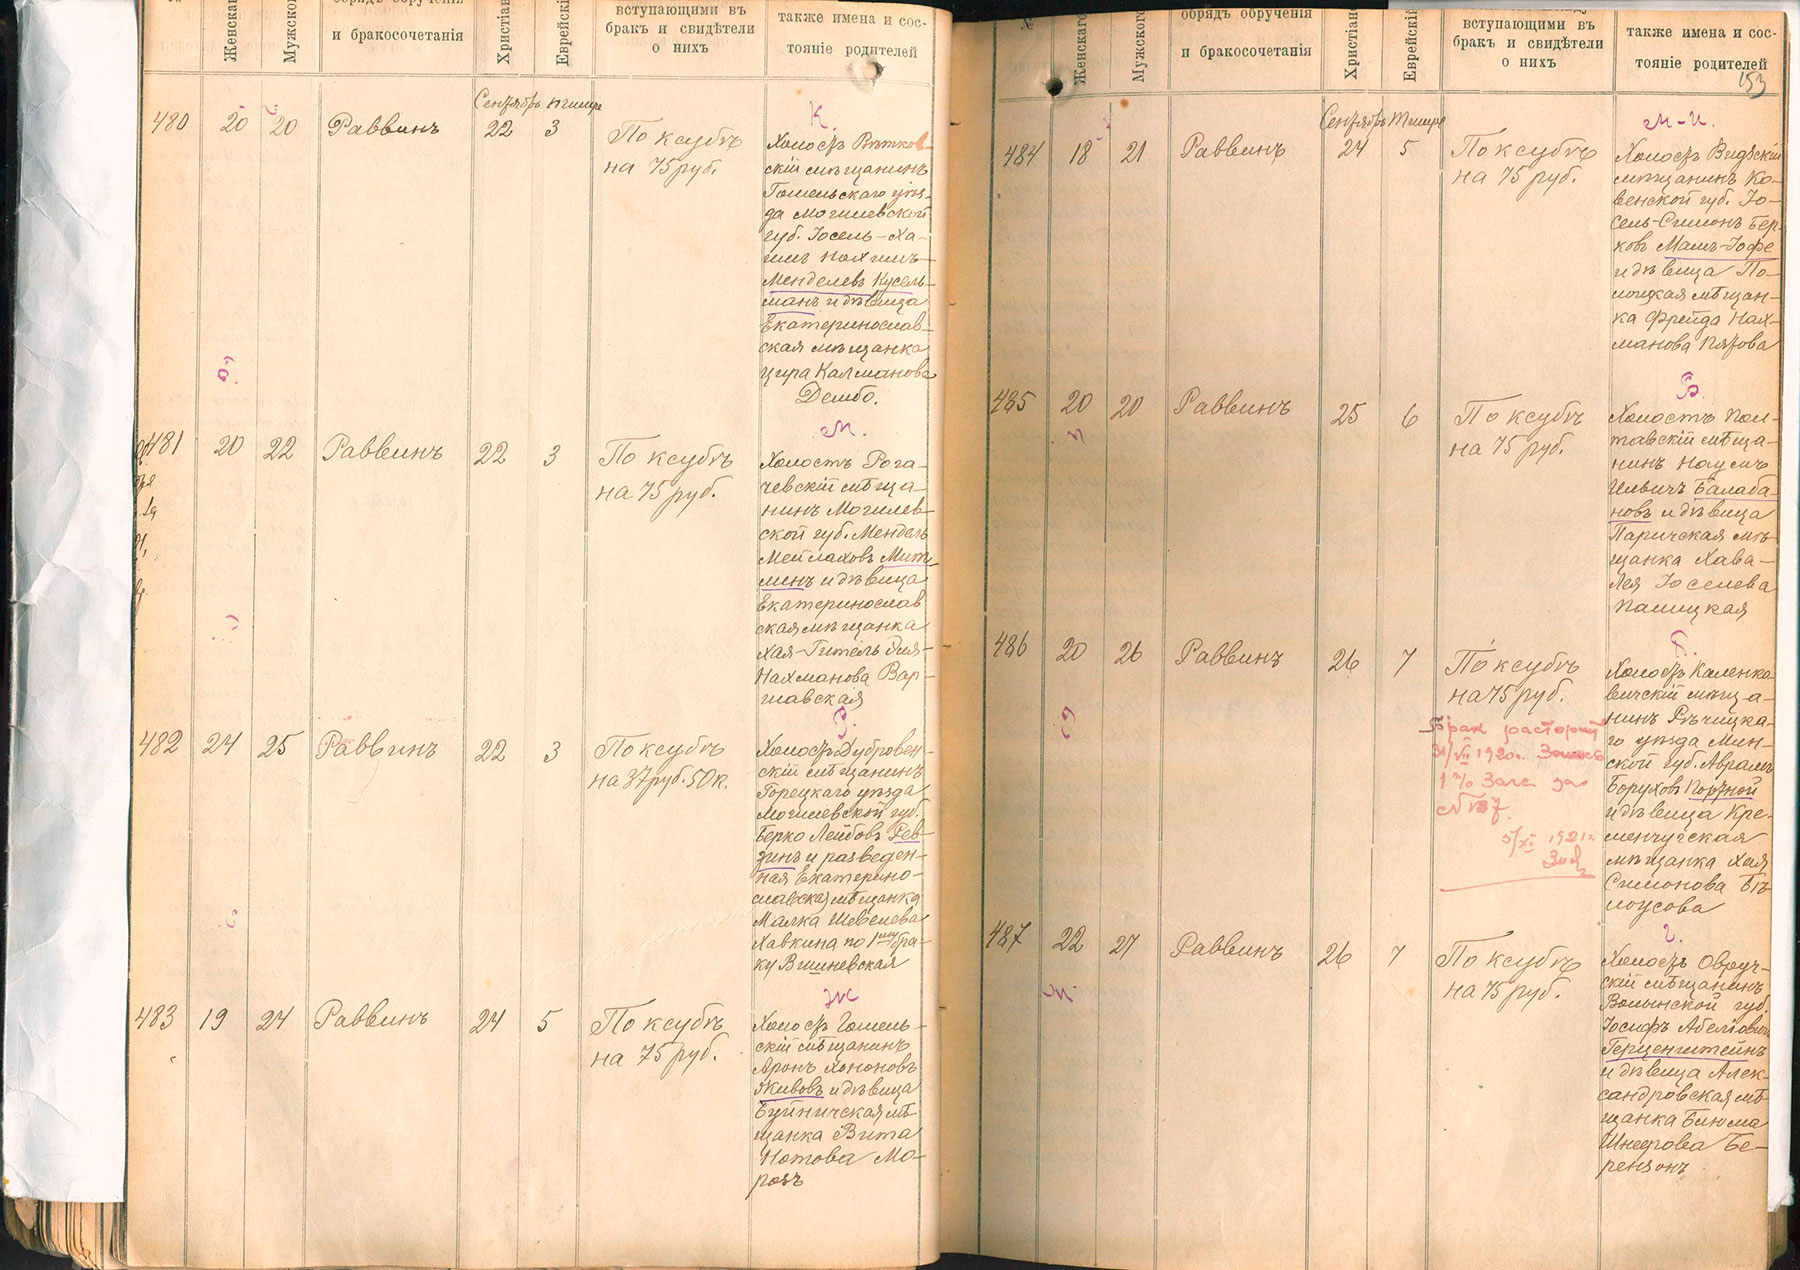 №
Женскаго
Мужского
обрядъ обрученія
и бракосочетанія
Христіан
Еврейскій
вступающими въ
бракъ и свидѣтели
о нихъ
также имена и сос-
тояніе родителей
Сентябрь тишре
480 20 20 Раввинъ 22 3 По ксубѣ
на 75 руб.
К.
Холостъ Вѣтков-
скій мѣщанинъ
Гомельскаго уѣз-
да Могилевской
губ. Іосель-Ха-
имъ Нохимъ-
Менделевъ Кусель-
манъ и дѣвица
Екатеринослав-
ская мѣщанка
Цира Калманова
Дембо.
481 20 22 Раввинъ 22 3 По ксубѣ
на 75 руб.
М.
Холостъ Рога-
чевскій мѣща-
нинъ Могилев-
ской губ. Мендель
Мейлаховъ Мит-
линъ и дѣвица
Екатеринослав
ская мѣщанка
Хая-Гитель
Нахманова Вар-
шавская
482 24 25 Раввинъ 22 3 По ксубѣ
на 37 руб. 50 к.
Р.
Холостъ Дубровен-
скій мѣщанинъ
Горецкаго уѣзда
Могилевской губ.
Берко Лейбовъ Рев-
зинъ и разведен-
ная Екатерино-
славская мѣщанка
Малка Шевелева
Хавкина по 1му бра-
ку Вишневская
483 19 24 Раввинъ 24 5 По ксубѣ
на 75 руб.
Ж
Холостъ Гомель-
скій мѣщанинъ
Аронъ Хононовъ
Живовъ и дѣвица
Буйничская мѣ-
щанка Вита
Нотова Мо-
розъ
№
Женскаго
Мужского
обрядъ обрученія
и бракосочетанія
Христіан
Еврейскій
вступающими въ
бракъ и свидѣтели
о нихъ
также имена и сос-
тояніе родителей
153
Сентябрь Тишре
484 18 21 Раввинъ 24 5 По ксубѣ
на 75 руб.
М-И.
Холостъ Видзскій
мѣщанинъ Ко-
венской губ. Іо-
сель-Симонъ Бер-
ковъ Маимъ-Іофе
и дѣвица По-
лоцкая мѣщан-
ка Фрейда Нах-
манова
485 20 20 Раввинъ 25 6 По ксубѣ
на 75 руб.
Б.
Холостъ Пол-
тавскій мѣща-
нинъ Наумъ
Ильичъ Балаба-
новъ и дѣвица
Паричская мѣ-
щанка Хава-
Лея Іоселева
Палицкая
486 20 26 Раввинъ 26 7 По ксубѣ
на 75 руб.
П.
Холостъ Каленко-
вичскій мѣща-
нинъ Рѣчицка-
го уѣзда Мин-
ской губ. Аврамъ
Боруховъ Портной
и дѣвица Кре-
менчугская
мѣщанка Хая
Симонова Бѣ-
лоусова
Брак расторгн
31/VII 1920 г.
5/XI 1921 г.
487 22 27 Раввинъ 26 7 По ксубѣ
на 75 руб.
Г.
Холостъ Овруч-
скій мѣщанинъ
Волынской губ.
Іосифъ Абеліовичъ
Герценштейнъ
и дѣвица Алек-
сандровская мѣ-
щанка Блюма
Шнеерова Бе-
рензонъ